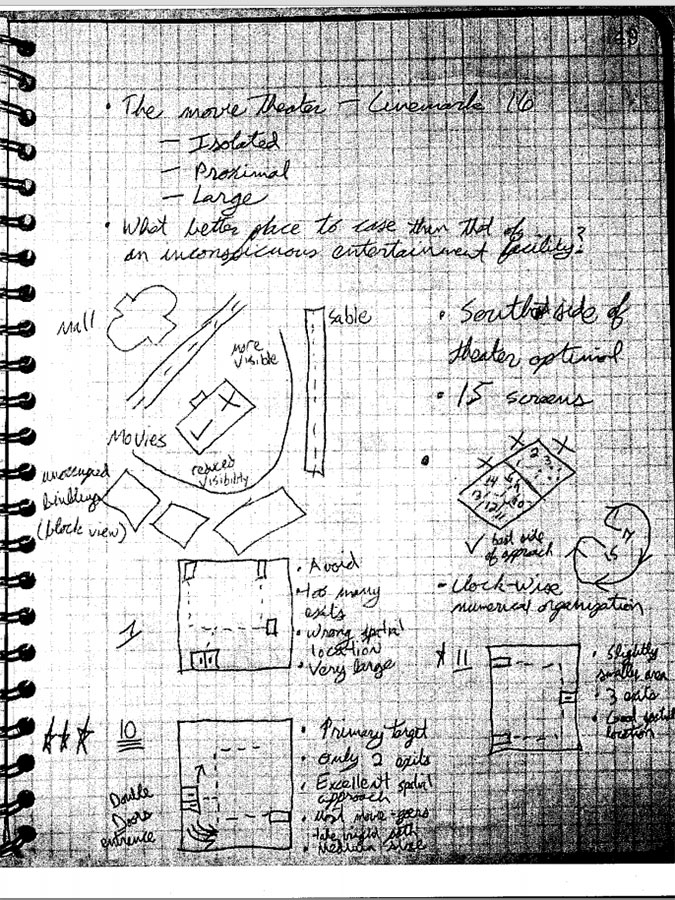 49
• The movie theater – Cinemark 16
– Isolated
– Proximal
– Large
• What better place to case than that of
an inconspicuous entertainment facility?
Mall
more
visible
Sable
Movies
reduced
visibility
unoccupied
buildings
(block view)
• South side of
theater optimal
• 15 screens
✓ best side
of approach
- Clock-wise
numerical organization
1
• Avoid
• too many
exits
• Wrong spatial
location
• Very large
11
• Slightly
smaller area
• 3 exits
• Good spatial
location
10
Double
Doors
entrance
• Primary target
• Only 2 exits
• Excellent spatial
approach
• Most movie-goers
• Medium size